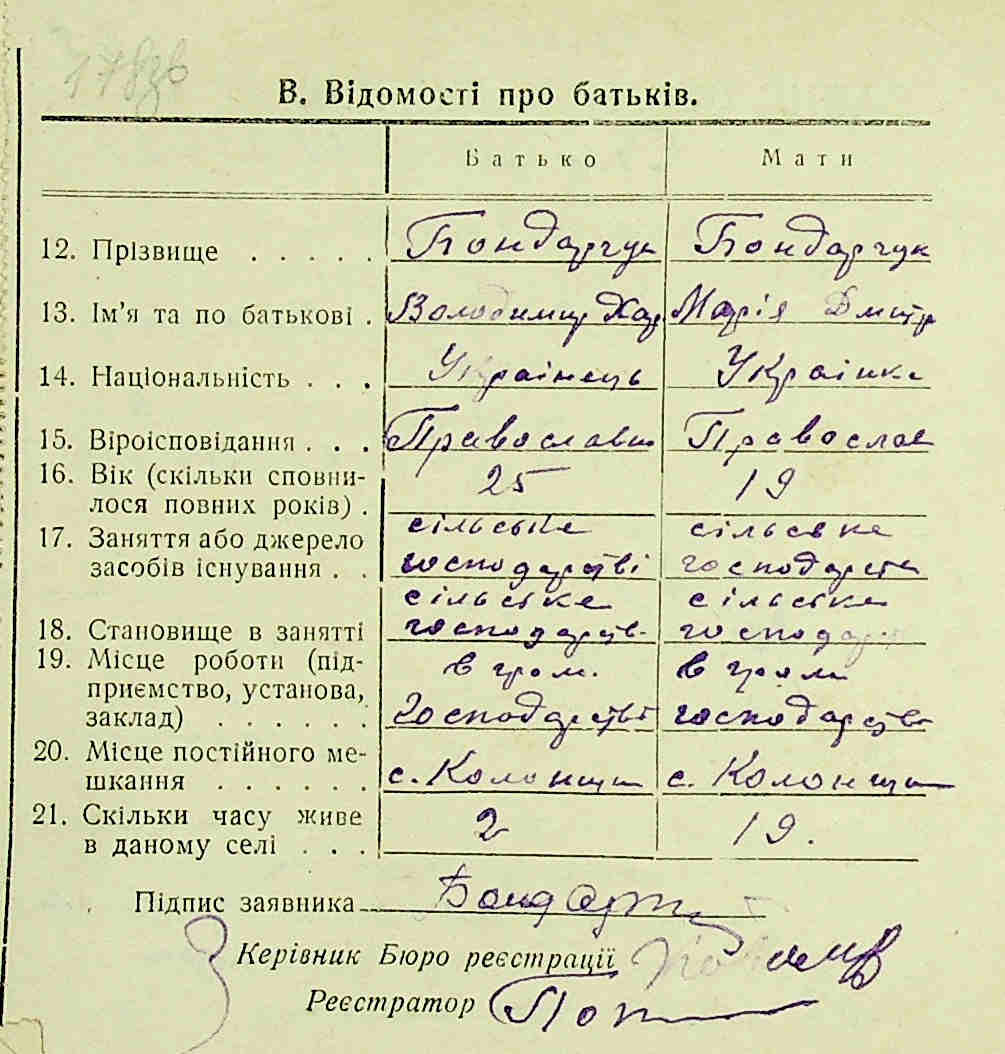 В. Відомості про батьків.
Батько Мати
12. Прізвище . . . . . Бондарчук Бондарчук
13. Ім'я та по батькові . Володимир Хар Марія Дмитр
14. Національність . . . Українець Українка
15. Віроісповідання . . . Православн Православ
16. Вік (скільки сповни-
лося повних років) . 25 19
17. Заняття або джерело сільське сільське
засобів існування . . господарстві господарств
сільське сільське
18. Становище в занятті господарств. господар
19. Місце роботи (під- в гром. в гром
приємство, установа,
заклад) . . . . . . господарстві господарстві
20. Місце постійного ме-
шкання . . . . . . с. Колонщи с. Колонщи
21. Скільки часу живе
в даному селі . . . 2 19.
Підпис заявника Бондарчу
Керівник Бюро реєстрації
Реєстратор